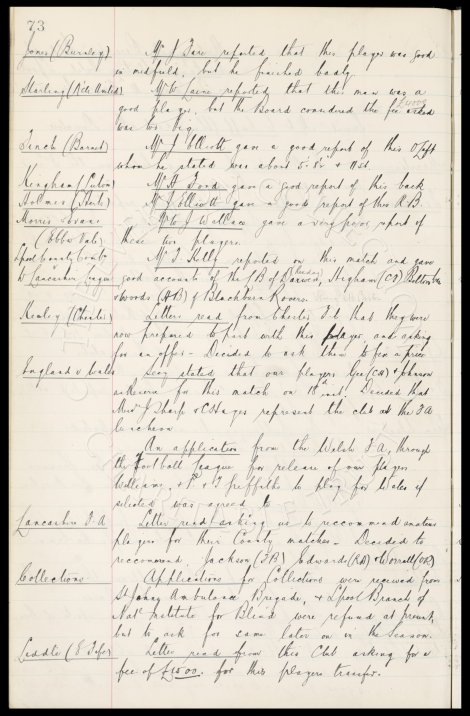 73
Jones (Burnley) Mr J Fare reported that this player was good
in midfield, but he finished badly.
Starling (Nctle Untd) Mr W Zaine reported that this man was a
good player, but the Board considered the fee asked £4000
was too big.
Finch (Barnet) Mr J Elliott gave a good report of this O/Left
whom he stated was about 5'8½ + 11 st.
Kingham (Luton) Mr H Food gave a good report of this back
Holmes (Norths) Mr J Elliott gave a good report of this R.B.
Morris & Evans Mr W J Wallace gave a very poor report of
(Ebbw Vale) these two players.
Lpool County Comb Mr T Kelly reported on this match and gave
v Lancashire League good accounts of the RB of Darwen, Higham (CF)
& Woods (HB) of Blackburn Rovers.
Keeley (Chester) Letter read from Chester F.C that they were
now prepared to part with this player, and asking
for an offer - Decided to ask them to fix a price
England v Wales Secy stated that our players Gee (CH) & Johnson
as Reserve for this match on 18th inst. Decided that
Messrs J Sharp & C Hayes represent the club at the FA
Luncheon
An application from the Welsh F.A, through
the Football League for release of our players
Williams, & T Griffiths to play for Wales if
selected was agreed to
Lancashire F.A Letter read asking us to reccommend amateur
players for their County matches - Decided to
reccommend Jackson (FB) Edwards (RH) & Worrall (OR)
Collections Applications for Collections were received from
St Johns Ambulance Brigade, & Lpool Branch of
Natl Institute for Blind were refused at present,
but to ask for same later on in the Season.
Liddle (E Fife) Letter read from this Club asking for a
fee of £1500. for this players transfer.